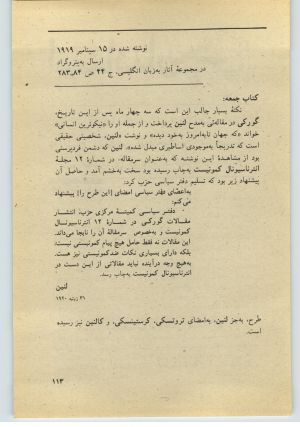 نوشته شده در ۱۵ سپتامبر ۱۹۱۹
ارسال به‌پتروگراد
در مجموعهٔ آثار به‌زبان انگلیسی، ج ۴۴ ص ۸۴ـ۲۸۳
کتاب جمعه:
نکتهٔ بسیار جالب این است که سه چهار ماه پس از این تاریخ،
گورکی در مقالاتی به‌مدح لنین پرداخت، از جمله او را «نیکوترین انسانی»
خواند «که جهان تابه‌امروز به‌خود دیده» و نوشت «لنین، شخصیتی حقیقی
است که تدریجاً به‌موجودی اساطیری مبدل شده». لنین که دشمن فردپرستی
بود از مشاهدهٔ این نوشته که به‌عنوان سرمقاله، در شمارهٔ ۱۲ مجلهٔ
انترناسیونال کمونیست به‌چاپ رسیده بود سخت به‌خشم آمد و حاصل آن
پیشنهاد زیر بود که تسلیم دفتر سیاسی حزب کرد:
به‌اعضای دفتر سیاسی امضای [این طرح را] پیشنهاد
می‌کنم:
دفتر سیاسی کمیتهٔ مرکزی حزب، انتشار
مقالات گورکی در شمارهٔ ۱۲ انترناسیونال
کمونیست و به‌خصوص سرمقالهٔ آن را نابجا می‌داند.
این مقالات نه فقط حامل هیچ پیام کمونیستی نیست،
بلکه دارای بسیاری نکات ضدکمونیستی نیز هست.
به‌هیچ وجه درآینده نباید مقالاتی از این دست در
انترناسیونال کمونیست به‌چاپ رسد.
لنین
۳۱ ژوئیه ۱۹۲۰
طرح، به‌جز لنین، به‌امضای تروتسکی، کرستینسکی، و کالنین نیز رسیده
است.
۱۱۳